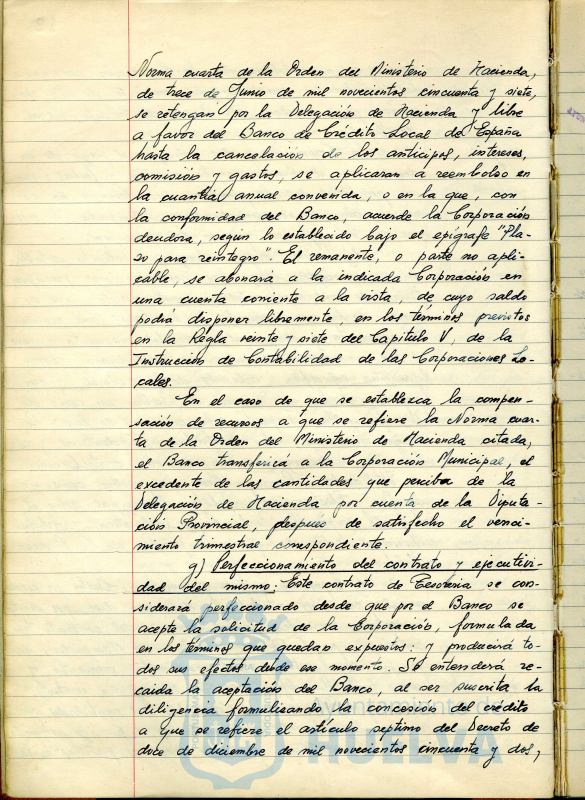 Norma cuarta de la Orden del Ministerio de Hacienda,
de trece de Junio de mil novecientos cincuenta y siete,
se retengan por la Delegación de Hacienda y libre
a favor del Banco de Crédito Local de España
hasta la cancelación de los anticipos, intereses,
comisión y gastos, se aplicaran a reembolso en
la cuantía anual convenida, o en la que, con
la conformidad del Banco, acuerde la Corporación
deudora, según lo establecido bajo el epígrafe "Pla-
zo para reintegro". El remanente, o parte no apli-
cable, se abonará a la indicada Corporación en
una cuenta corriente a la vista, de cuyo saldo
podrá disponer libremente, en los términos previstos
en la Regla veinte y siete del Capítulo V, de la
Instrucción de Contabilidad de las Corporaciones Lo-
cales.
En el caso de que se establezca la compen-
sación de recursos a que se refiere la Norma cuar-
ta de la Orden del Ministerio de Hacienda citada,
el Banco transferirá a la Corporación Municipal, el
excedente de las cantidades que perciba de la
Delegación de Hacienda por cuenta de la Diputa-
ción Provincial, despues de satisfecho el venci-
miento trimestral correspondiente.
g) Perfeccionamiento del contrato y ejecutivi-
dad del mismo: Este contrato de Tesorería se con-
siderará perfeccionado desde que por el Banco se
acepte la solicitud de la Corporación, formulada
en los términos que quedan expuestos: y producirá to-
dos sus efectos desde ese momento. Se entenderá re-
caida la aceptación del Banco, al ser suscrita la
diligencia formulisando la concesión del crédito
a que se refiere el artículo septimo del Decreto de
doce de diciembre de mil novecientos cincuenta y dos,
HUELVA